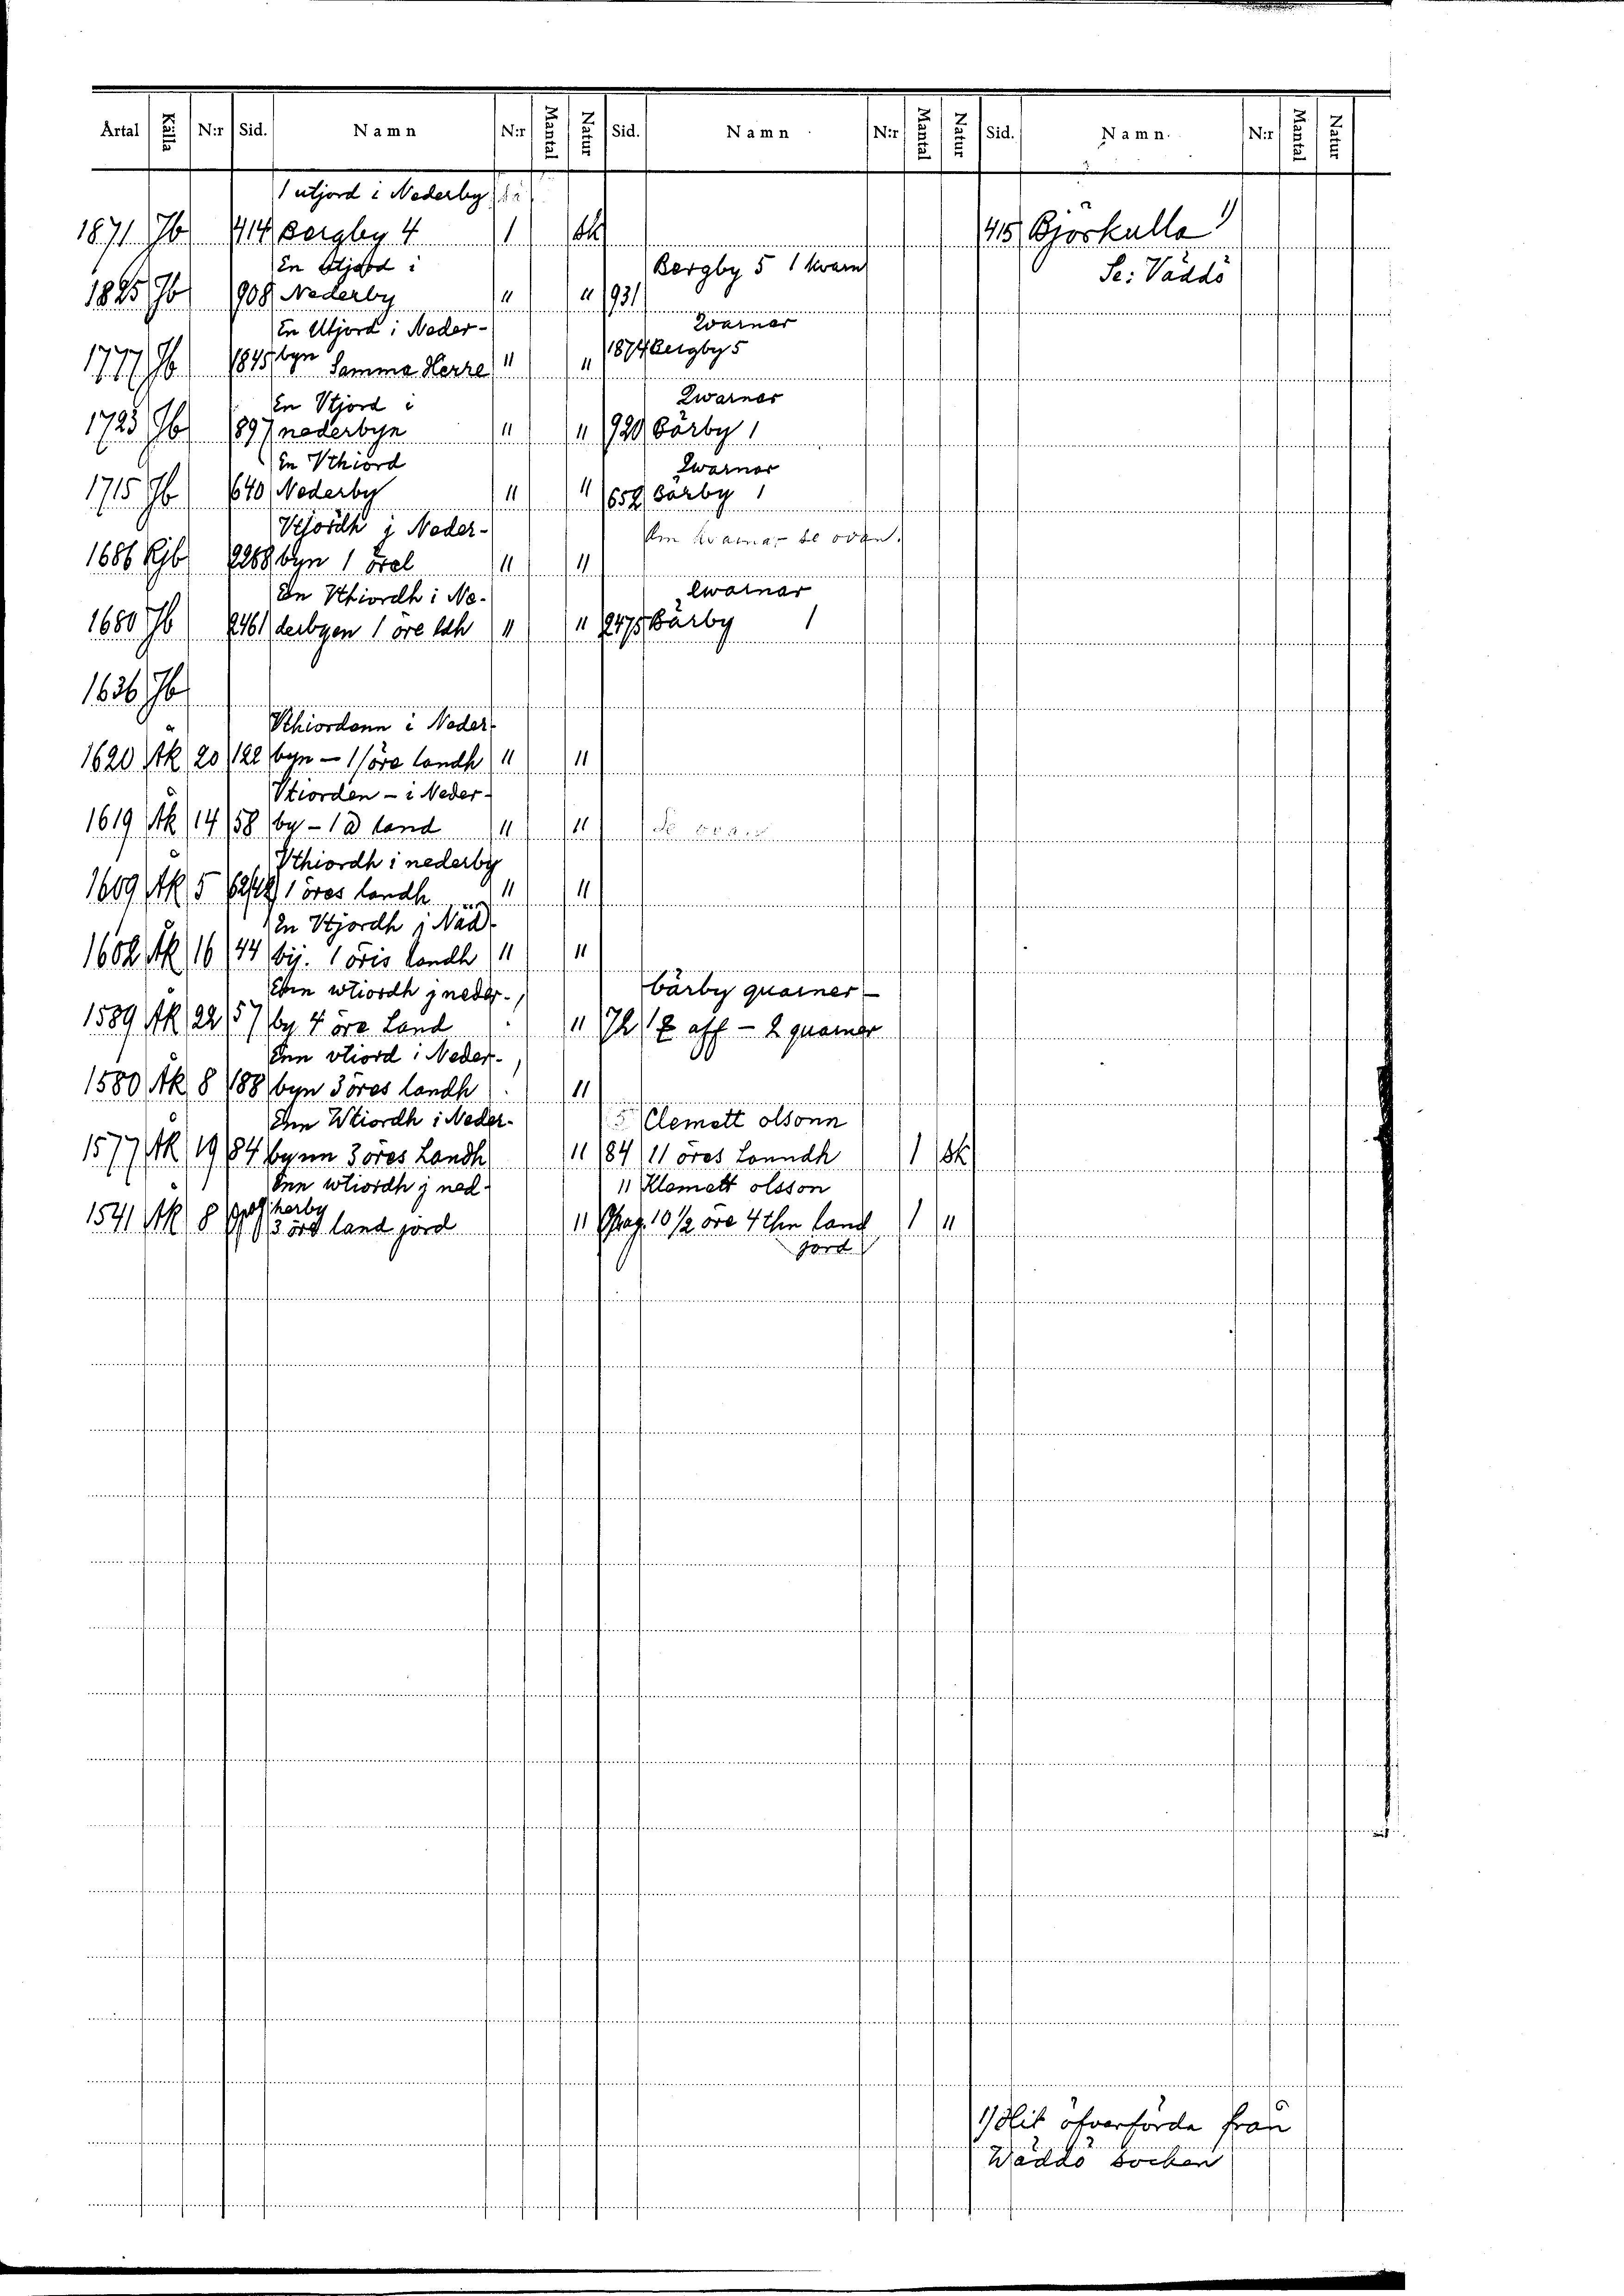 Årtal Källa N:r Sid. Namn N:r Mantal Natur Sid. Namn N:r Mantal Natur Sid. Namn. N:r Mantal Natur
1 utjord i Nederby
1871 Jb 414 Bergby 4 1 sk 415 Björkulla 1)
En utjord i Bergby 5 1 kvarn Se: Väddö
1825 Jb 908 Nederby " " 931
En Utjord i Neder- 2 warnar
1777 Jb 1845 byn Samma Herre " " 1874 Bergby 5
En Vtjord i 2 warnar
1723 Jb 897 nederbyn " " 920 Bärby 1
En Vthiord 2 warnar
1715 Jb 640 Nederby " " 652 Bärby 1
Vtjordh j Neder- Om kvarnar se ovan.
1686 Kjb 2268 byn 1 örel " "
En Vthiordh i Ne- 2 warnar
1680 Jb 2461 derbyen 1 öre ldh " " 2475 Bärby 1
1636 Jb
Vthiordann i Neder-
1620 Åk 20 122 byn - 1 öre landh " "
Vtiorden - i Neder-
1619 Åk 14 58 by - 1 land " " Se ovan
Vthiordh i nederby
1609 Åk 5 1 öres landh " "
En Vtjordh j Näd-
1602 Åk 16 44 bij. 1 öris landh " "
Enn wtiordh j neder- bärby quarner -
1589 Åk 22 57 by 4 öre Land " 72 aff - 2 quarner
Enn vtiord i Neder-
1580 Åk 8 188 byn 3 öres landh "
Enn Wtiordh i Neder- Clemett olsonn
1577 Åk 19 84 bynn 3 öres Landh " 84 11 öres Lanndh 1 sk
Enn wtiordh j ned- " Klemett olsson
1541 Åk 8 herby
3 öre land jord " 10 1/2 öre 4 thn land 1 "
jord
1) Hit öfverförda från
Wäddö socken